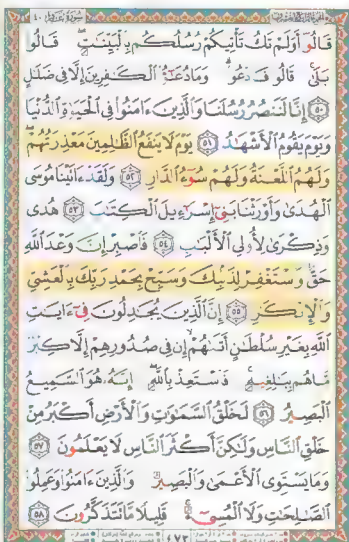 سورة غافر ٤٠
قَالُوٓا۟ أَوَلَمْ تَكُ تَأْتِيكُمْ رُسُلُكُم بِٱلْبَيِّنَٰتِ ۖ قَالُوا۟
بَلَىٰ ۚ قَالُوا۟ فَٱدْعُوا۟ ۗ وَمَا دُعَٰٓؤُا۟ ٱلْكَٰفِرِينَ إِلَّا فِى ضَلَٰلٍ
﴿٥٠﴾ إِنَّا لَنَنصُرُ رُسُلَنَا وَٱلَّذِينَ ءَامَنُوا۟ فِى ٱلْحَيَوٰةِ ٱلدُّنْيَا
وَيَوْمَ يَقُومُ ٱلْأَشْهَٰدُ ﴿٥١﴾ يَوْمَ لَا يَنفَعُ ٱلظَّٰلِمِينَ مَعْذِرَتُهُمْ ۖ
وَلَهُمُ ٱللَّعْنَةُ وَلَهُمْ سُوٓءُ ٱلدَّارِ ﴿٥٢﴾ وَلَقَدْ ءَاتَيْنَا مُوسَى
ٱلْهُدَىٰ وَأَوْرَثْنَا بَنِىٓ إِسْرَٰٓءِيلَ ٱلْكِتَٰبَ ﴿٥٣﴾ هُدًى
وَذِكْرَىٰ لِأُو۟لِى ٱلْأَلْبَٰبِ ﴿٥٤﴾ فَٱصْبِرْ إِنَّ وَعْدَ ٱللَّهِ
حَقٌّ وَٱسْتَغْفِرْ لِذَنۢبِكَ وَسَبِّحْ بِحَمْدِ رَبِّكَ بِٱلْعَشِىِّ
وَٱلْإِبْكَٰرِ ﴿٥٥﴾ إِنَّ ٱلَّذِينَ يُجَٰدِلُونَ فِىٓ ءَايَٰتِ
ٱللَّهِ بِغَيْرِ سُلْطَٰنٍ أَتَىٰهُمْ ۙ إِن فِى صُدُورِهِمْ إِلَّا كِبْرٌ
مَّا هُم بِبَٰلِغِيهِ ۚ فَٱسْتَعِذْ بِٱللَّهِ ۖ إِنَّهُۥ هُوَ ٱلسَّمِيعُ
ٱلْبَصِيرُ ﴿٥٦﴾ لَخَلْقُ ٱلسَّمَٰوَٰتِ وَٱلْأَرْضِ أَكْبَرُ مِنْ
خَلْقِ ٱلنَّاسِ وَلَٰكِنَّ أَكْثَرَ ٱلنَّاسِ لَا يَعْلَمُونَ ﴿٥٧﴾
وَمَا يَسْتَوِى ٱلْأَعْمَىٰ وَٱلْبَصِيرُ وَٱلَّذِينَ ءَامَنُوا۟ وَعَمِلُوا۟
ٱلصَّٰلِحَٰتِ وَلَا ٱلْمُسِىٓءُ ۚ قَلِيلًا مَّا تَتَذَكَّرُونَ ﴿٥٨﴾
٤٧٣